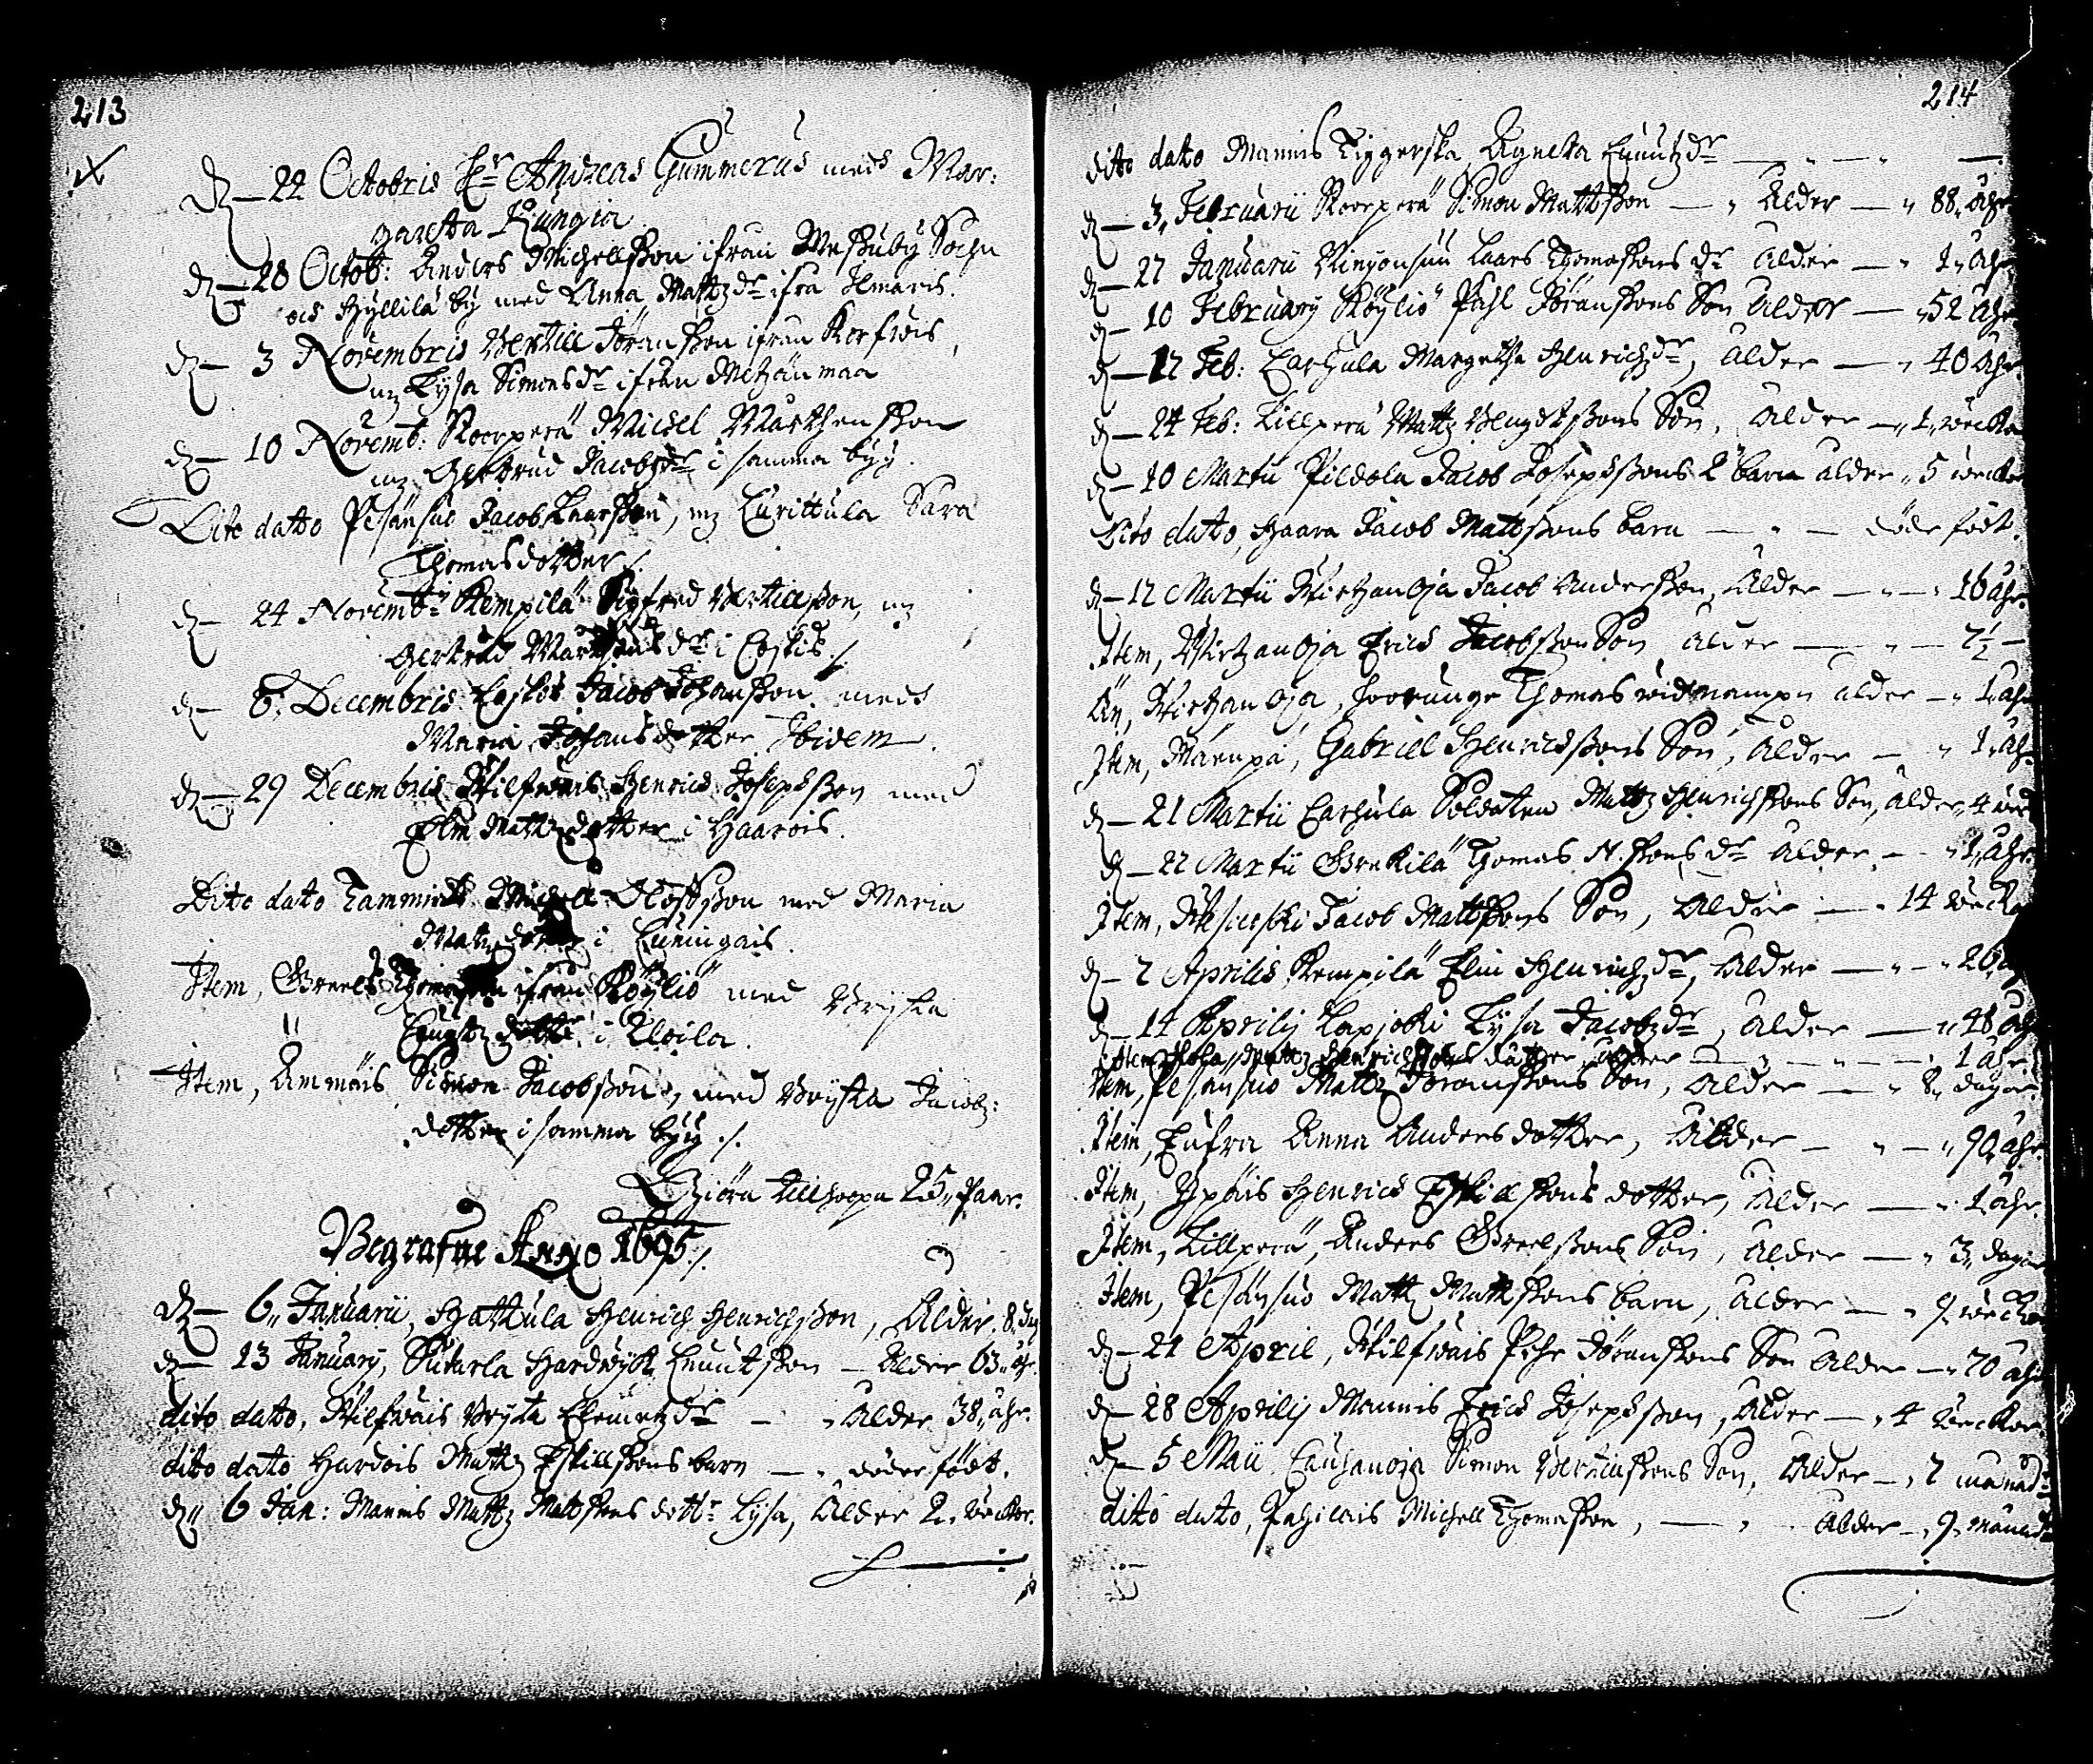 213
D— 22 Octobris Hr Andreas Gummerus med Mar:
gareta Kungia
D— 28 Octob: Anders Michellsson ifrån Wessuby Sochn
och Hyllilä by med Anna Mattzdr ifrå Ilmaris.
D— 3 Novembris Bertill Jöransson ifrån Korfwois,
mz Lysa Simonsdr ifrån Metzänmaa
D— 10 Novemb: Koorperä Michel Marthensson
mz Gertrud Jacobsdr i samma byy.
Dito datto Pesänsuo Jacob Laarsson, mz Eurittula Sara
Thomasdotter ./.
D— 24 Novemb: Kempilä Sigfred Bertillsson, mz
Gertrud Marthensdr i Coskis ./.
D— 8. Decembris Coskis Jacob Johansson med
Maria Johansdotter Ibidem.
D— 29 Decembris Kilfwais Henrich Josephsson med
Elin Mattzdotter i Haarois.
Dito dato Tammist Michel Oloffsson med Maria
Matz dotter i Cuningais.
Item, Greels Thomasson ifrån Köyliö med Bryta
Knutz dotter i Uloila.
Item, Ämmäis Simon Jacobsson, med Bryta Jacobz:
dotter i samma byy ./.
Giöra tillhopa 25 Paar.
Begrafne Anno 1695 ./.
D— 6 Januarii, Hattula Henrich Henrichsson, Ålder 8. dag
D— 13 January, Sutarla Hardwyk Knutsson — Ålder 63 åhr.
dito dato, Kilfwais Bryta Clemetzdr — Ålder 38 åhr.
dito dato Hardois Mattz Eskillssons barn — döder födt.
D 6 Jan: Mannis Mattz Matzsons dottr Lysa, Ålder 2 weckor.
214
dito dato Mannis Tiggerska Agneta Knutzdr — —
D— 3 Februarii Koorperä Simon Mattsson — Ålder — 88 åhr
D— 27 Januarii Ninjonsuu Laars Thomassons dr Ålder — 1 åhr
D— 10 February Köyliö Påhl Jöranssons Son Ålder — 52 åhr
D— 17 Feb: Carhula Margetha Henrichzdr, Ålder — 40 åhr.
D— 24 Feb: Lillperä Mattz Bengtssons Son, Ålder — 1 wecka
D— 10 Martii Pildola Jacob Josephssons 2 barn ålder 5 weckor
Dito dato, Haara Jacob Mattssons barn — döde födt.
D— 12 Martii Wirtzanoja Jacob Andersson, Ålder — 16 åhr.
Item, Wirtzanoja Erich Jacobsson Son ålder — 2½ —
Än, Wirtzanoja, hoorunge Thomas widnampn ålder — 1 åhr
Item, Manupä, Gabriel Henrichssons Son, Ålder — 1 åhr
D— 21 Martii Carhula Soldaten Mattz Henrichssons Son, Ålder 4 weck
D— 22 Martii Greekilä Thomas N. sons dr Ålder — 1 åhr.
Item, Jacob Mattssons Son, Ålder — 14 weckor
D— 7 Aprilis Kempilä Elin Henrichzdr, Ålder — 26
D— 14 Aprilij Lapjoki Lysa Jacobzdr, Ålder — 48 åhr
Item Mattz Henrichssons dotter, ålder — 1 åhr.
Item, Pesänsuo Mattz Jöranssons Son, Ålder — 8 dagar.
Item, Eufra Anna Andersdotter, Ålder — 90 åhr.
Item, Ypäis Henrich Eskillssons dotter, Ålder — 1 åhr.
Item, Lillperä, Anders Greelssons Son, Ålder — 3 dagar
Item, Pesänsuo Mattz Mattssons barn, Ålder — 9 weckor
D— 21 April, Kilfwais Pehr Jöranssons Son Ålder — 70 åhr
D— 28 Aprilij Mannis Erich Josephsson, Ålder — 4 weckor.
D— 5 Maii Cauhanoja Simon Bertillssons Son, Ålder — 7 månad
dito dato, Pahilais Michell Thomasson, — Ålder — 9 månad